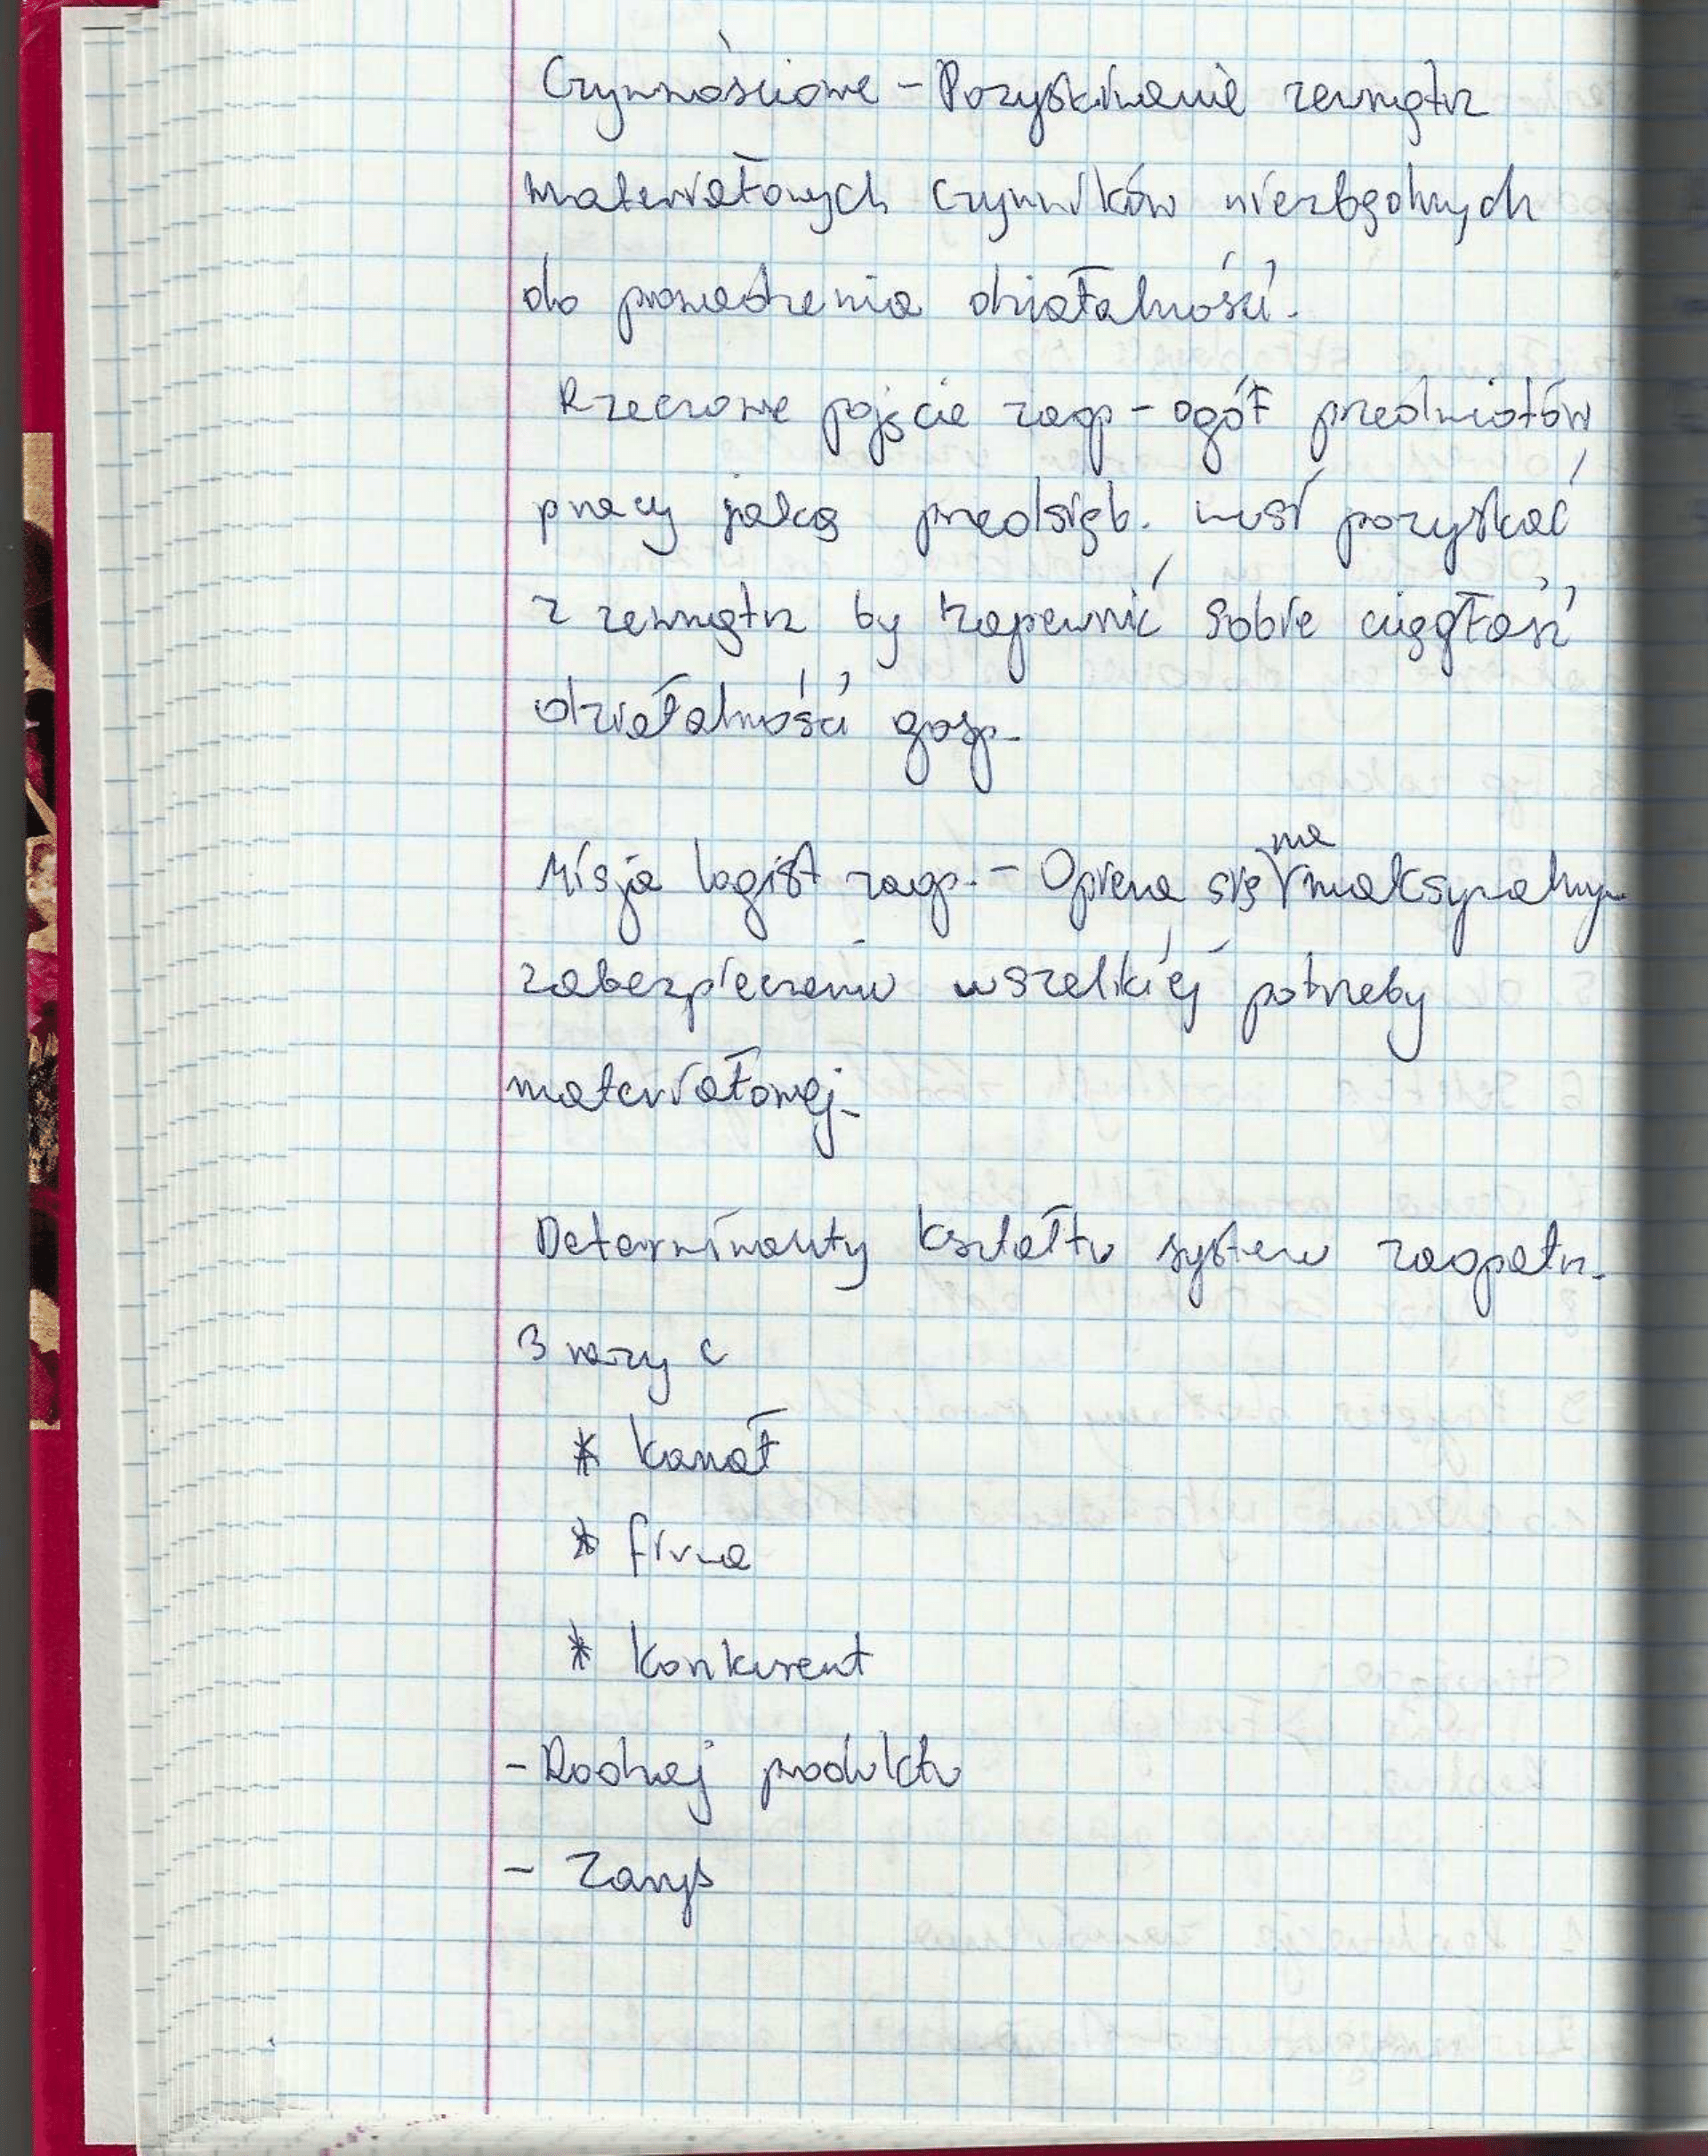 Czynnościowe - Pozyskiwanie zewnątrz
materiałowych czynników niezbędnych
do prowadzenia działalności.
Rzeczowe pojęcie zaop - ogół przedmiotów
pracy jaką przedsięb. musi pozyskać
z zewnątrz by zapewnić sobie ciągłość
działalności gosp.
Misja logist zaop. - Opiera się na maksymalnym
zabezpieczeniu wszelkiej potrzeby
materiałowej.
Determinanty kształtu system zaopatrz.
3 razy c
* kanał
* firma
* konkurent
- Rodzaj produktu
- Zarys